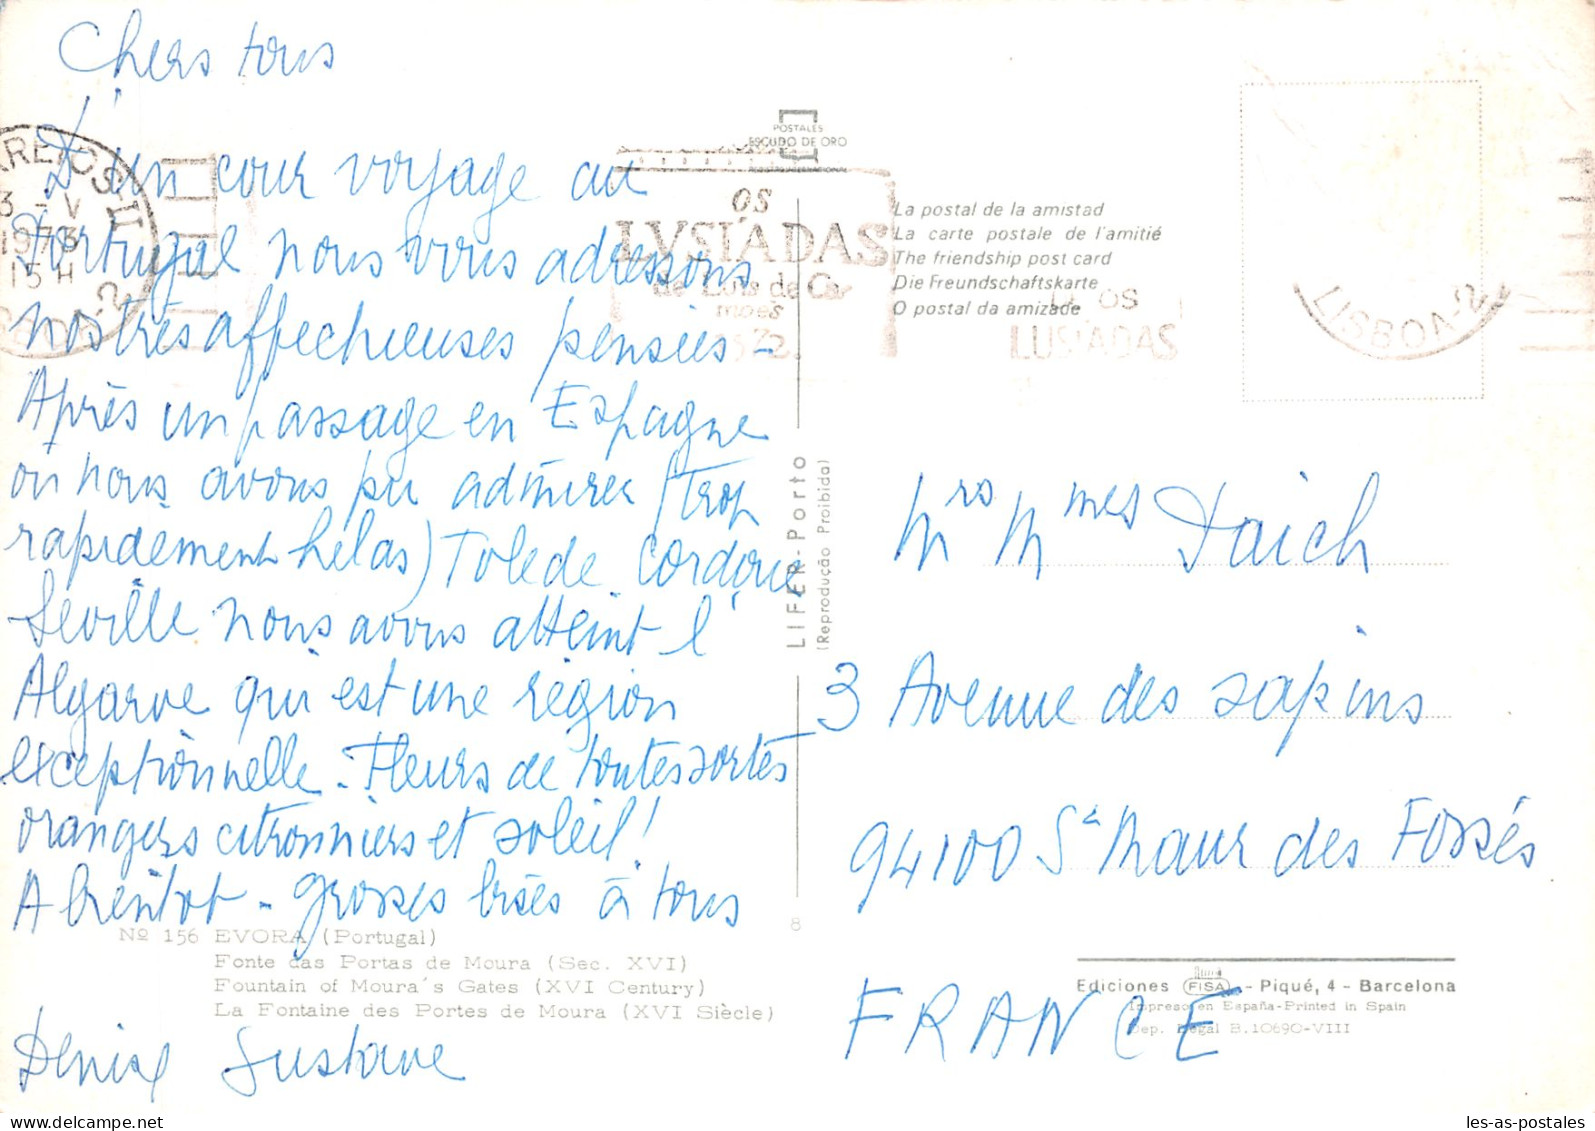 Chers tous
D'un cour voyage au
Portugal nous vous adressons
nos très affectueuses pensées -
Après un passage en Espagne
ou nous avons pu admirer (trop
rapidement hélas) Tolede Cordoue
Seville nous avons atteint l'
Algarve qui est une région
exceptionnelle - Fleurs de toutes sortes
orangers citronniers et soleil !
A bientot - grosses bises à tous
Denise Gustave
Nº 156 EVORA (Portugal)
Fonte das Portas de Moura (Sec. XVI)
Fountain of Moura's Gates (XVI Century)
La Fontaine des Portes de Moura (XVI Siècle)
3 - V
1973
15 H
POSTALES
ESCUDO DE ORO
OS
LVSÍADAS
de Luís de Ca-
mões
La postal de la amistad
La carte postale de l'amitié
The friendship post card
Die Freundschaftskarte
O postal da amizade
OS
LUSÍADAS
LISBOA-2
LIFER - Porto
(Reprodução Proibida)
8
Mrs Mmes Daich
3 Avenue des sapins
94100 St Maur des Fossés
FRANCE
Ediciones FISA - Piqué, 4 - Barcelona
Impreso en España-Printed in Spain
Dep. Legal B.10690-VIII
les-as-postales